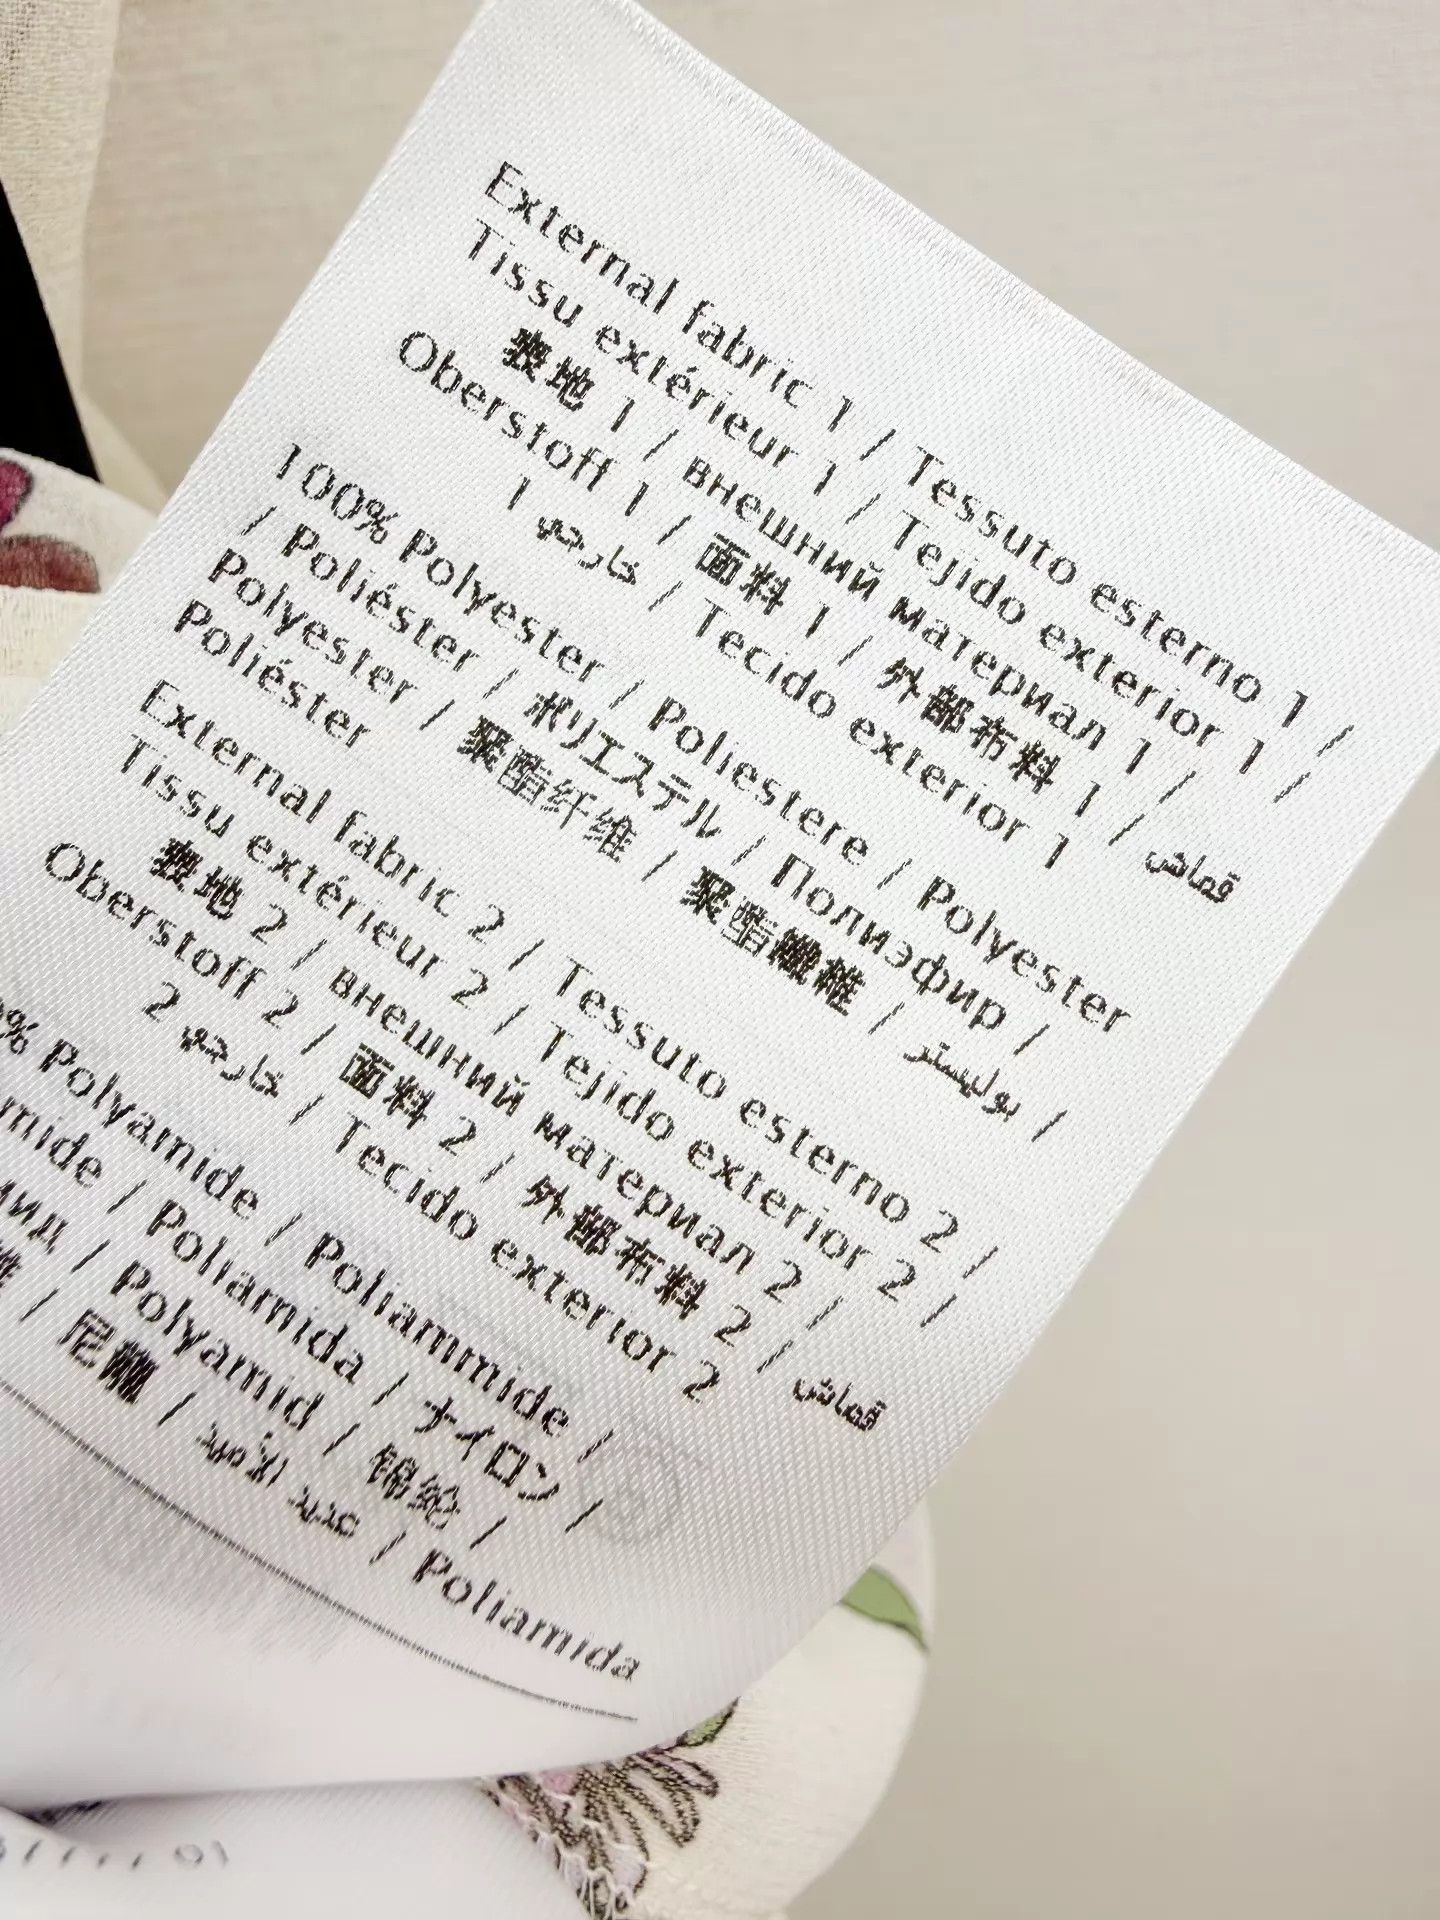 External fabric 1 / Tessuto esterno 1 /
Tissu extérieur 1 / Tejido exterior 1 /
表地 1 / внешний материал 1 /
Oberstoff 1 / 面料 1 / 外部布料 1 / قماش
خارجي 1 / Tecido exterior 1
100% Polyester / Poliestere / Polyester
/ Poliéster / ポリエステル / Полиэфир /
Polyester / 聚酯纤维 / 聚酯纖維 / بوليستر /
Poliéster
External fabric 2 / Tessuto esterno 2 /
Tissu extérieur 2 / Tejido exterior 2 /
表地 2 / внешний материал 2 /
Oberstoff 2 / 面料 2 / 外部布料 2 / قماش
خارجي 2 / Tecido exterior 2
% Polyamide / Poliammide /
mide / Poliamida / ナイロン /
мид / Polyamid / 锦纶 /
/ 尼龍 / عديد الأميد / Poliamida